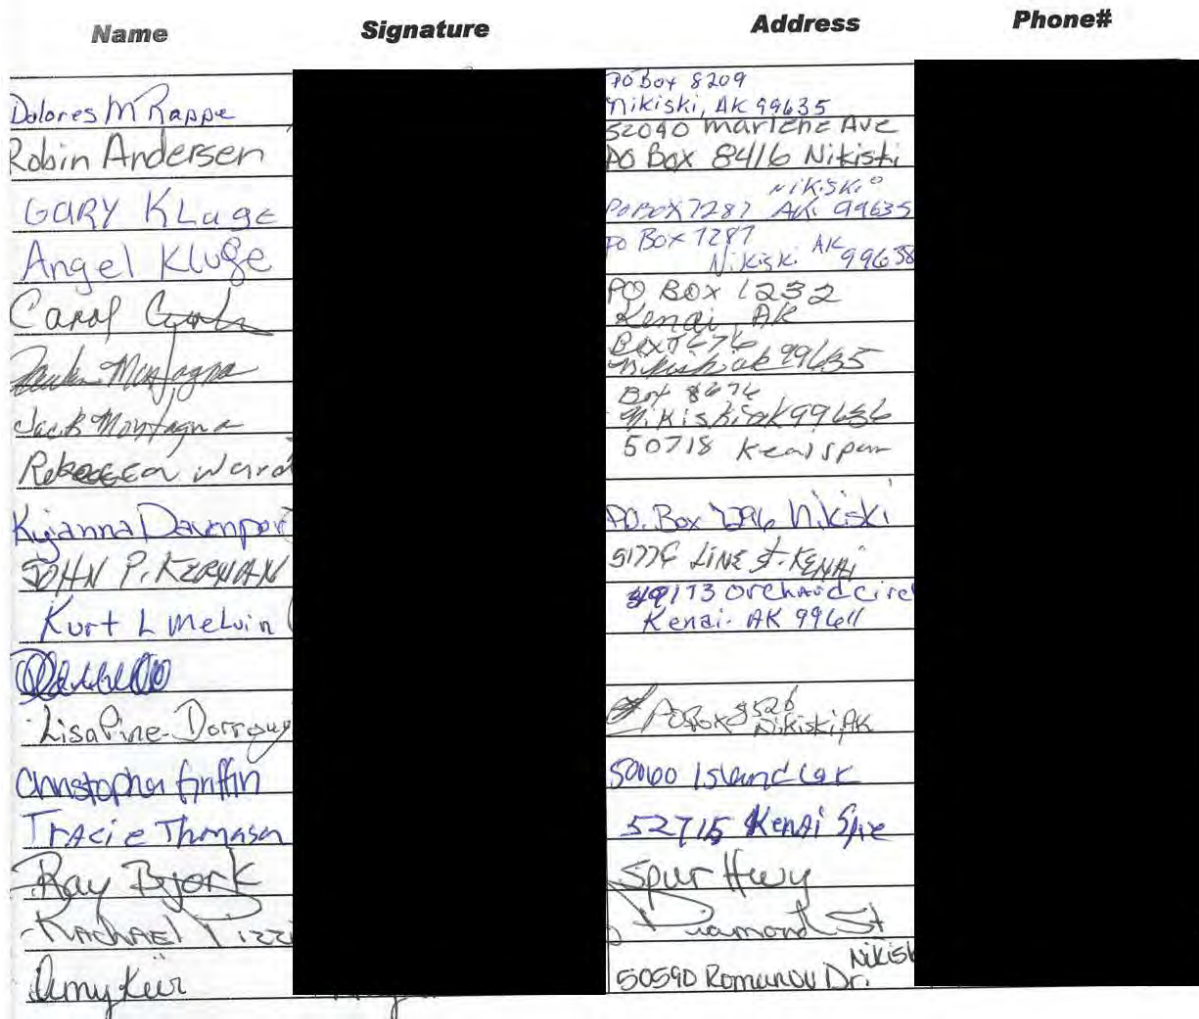 Name Signature Address Phone#
Dolores M Rappe PO Box 8209
Nikiski, AK 99635
Robin Andersen 52040 Marlene Ave
PO Box 8416 Nikiski
GARY KLuge Nikiski
PO BOX 7287 AK. 99635
Angel Kluge PO Box 7287
Nikiski AK 99635
Carol PO BOX 1232
Kenai, AK
Montagna Box
Nikiski ak 99635
Jack Montagna Box 8676
Nikiski ak 99636
Rebecca Ward 50718 Kenai spur
Kyjanna Davenport P.O. Box 7296 Nikiski
JOHN P. KERNAN LINE St. KENAI
Kurt L Melvin Orchard Circl
Kenai. AK 99611
Lisa Pine-Dorrough PO Box 8526
Nikiski, AK
Christopher Griffin 50060 Island Lak
Tracie Thomason 52715 Kenai
Ray Bjork Spur Hwy
RACHAEL Pizzi Diamond St
Amy Nikisk
50590 Romanov Dr.